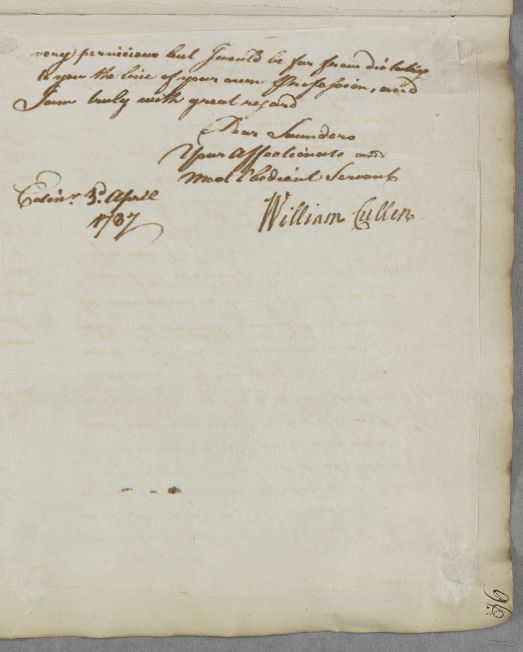 very pernicious but I would be far from dictating
to you the line of your own Profession, and
I am truly with great regard
Dear Saunders
Your Affectionate and
Most Obedient Servant
Edinr. 3d. April
1787
William Cullen
96